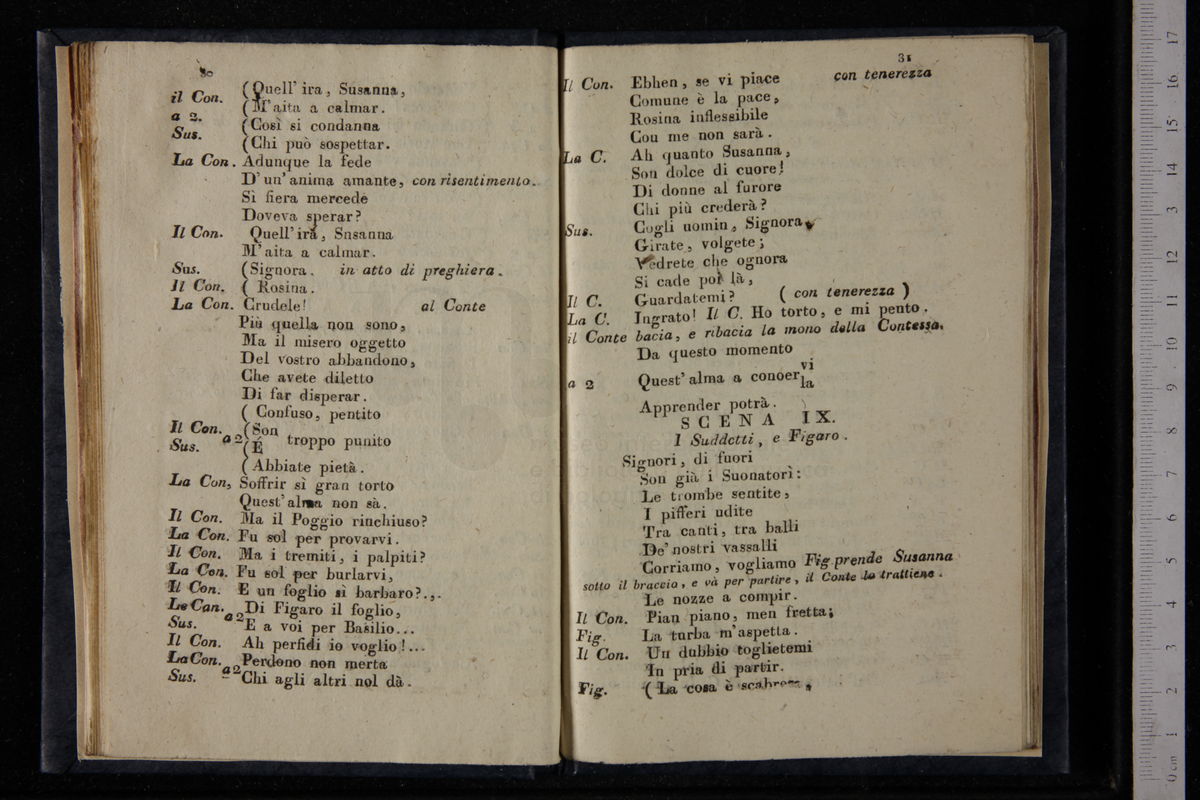 30
il Con. (Quell' ira, Susanna,
a 2. (M'aita a calmar.
Sus. (Così si condanna
(Chi può sospettar.
La Con. Adunque la fede
D' un' anima amante, con risentimento.
Sì fiera mercede
Doveva sperar?
Il Con. Quell' ira, Susanna
M'aita a calmar.
Sus. (Signora. in atto di preghiera.
Il Con. ( Rosina.
La Con. Crudele! al Conte
Più quella non sono,
Ma il misero oggetto
Del vostro abbandono,
Che avete diletto
Di far disperar.
( Confuso, pentito
Il Con. (Son
Sus. a 2 (É troppo punito
( Abbiate pietà.
La Con, Soffrir sì gran torto
Quest' alma non sà.
Il Con. Ma il Poggio rinchiuso?
La Con. Fu sol per provarvi.
Il Con. Ma i tremiti, i palpiti?
La Con. Fu sol per burlarvi,
Il Con. E un foglio sì barbaro?...
La Con. a 2 Di Figaro il foglio,
Sus. E a voi per Basilio...
Il Con. Ah perfidi io voglio!...
La Con. a 2 Perdono non merta
Sus. Chi agli altri nol dà.
31
Il Con. Ebben, se vi piace con tenerezza
Comune è la pace,
Rosina inflessibile
Cou me non sarà.
La C. Ah quanto Susanna,
Son dolce di cuore!
Di donne al furore
Chi più crederà?
Sus. Cogli uomin, Signora,
Girate, volgete;
Vedrete che ognora
Si cade poi là,
Il C. Guardatemi? ( con tenerezza )
La C. Ingrato! Il C. Ho torto, e mi pento.
il Conte bacia, e ribacia la mono della Contessa.
Da questo momento
a 2 Quest' alma a conoer vi
la
Apprender potrà.
SCENA IX.
I Suddetti, e Figaro.
Signori, di fuori
Son già i Suonatori:
Le trombe sentite,
I pifferi udite
Tra canti, tra balli
De' nostri vassalli
Corriamo, vogliamo Fig prende Susanna
sotto il braccio, e và per partire, il Conte lo trattiene.
Le nozze a compir.
Il Con. Pian piano, men fretta;
Fig. La turba m'aspetta.
Il Con. Un dubbio toglietemi
In pria di partir.
Fig. ( La cosa è
0 cm 1 2 3 4 5 6 7 8 9 10 11 12 13 14 15 16 17